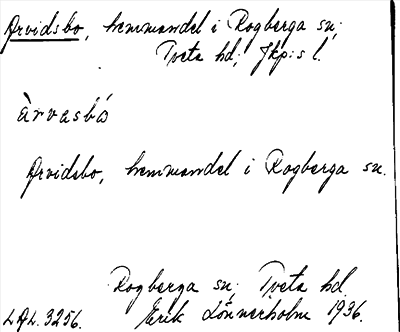 Arvidsbo, hemmandel i Rogberga sn;
Tveta hd; Jkp:s l.
àrvasbò
Arvidsbo, hemmandel i Rogberga sn.
Rogberga sn; Tveta hd.
LAL. 3256. Erik Lönnerholm 1936.